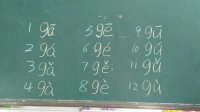 1 gā 5 gē 9 gū
2 gá 6 gé 10 gú
3 gǎ 7 gě 11 gǔ
4 gà 8 gè 12 gù